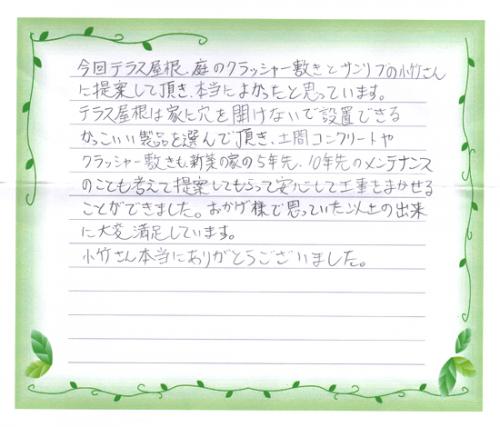 今回テラス屋根、庭のクラッシャー敷きとサンリブの小竹さん
に提案して頂き、本当によかったと思っています。
テラス屋根は家に穴を開けないで設置できる
かっこいい製品を選んで頂き、土間コンクリートや
クラッシャー敷きも、新築の家の5年先、10年先のメンテナンス
のことも考えて提案してもらって安心して工事をまかせる
ことができました。おかげ様で思っていた以上の出来
に大変満足しています。
小竹さん本当にありがとうございました。